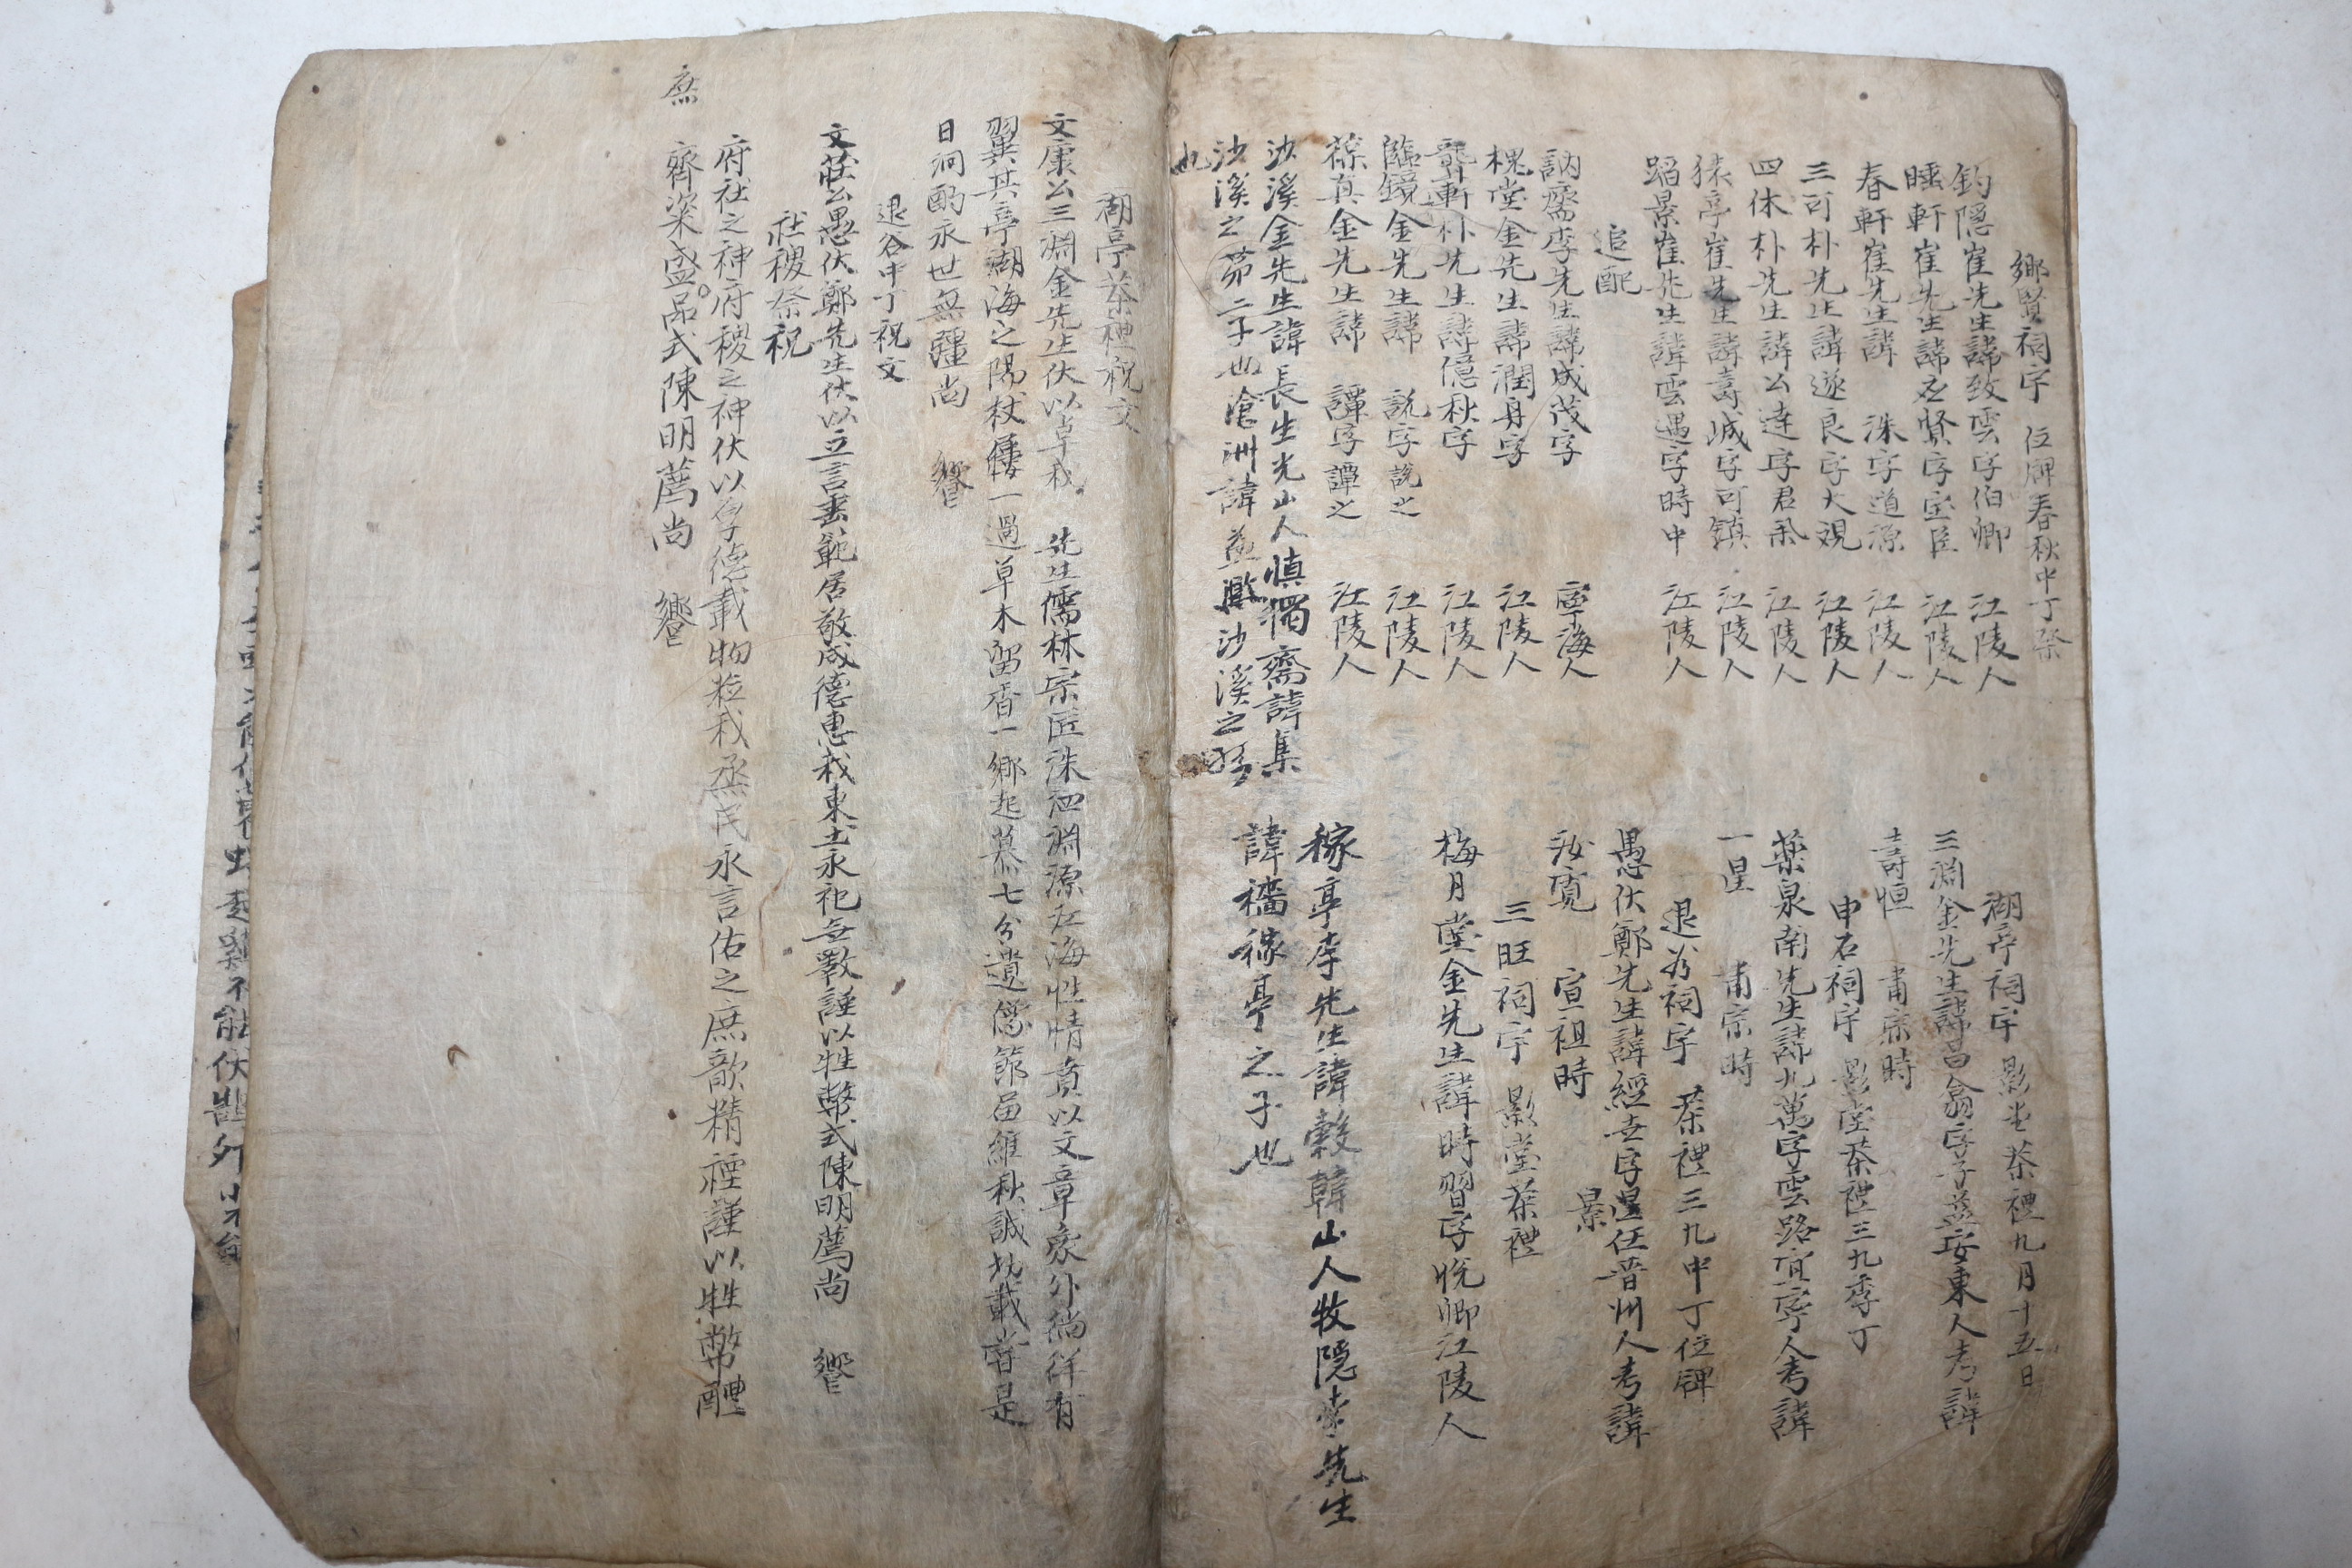 鄕賢祠宇 位牌春秋中丁祭
釣隱崔先生諱致雲字伯卿 江陵人
睡軒崔先生諱應賢字寶臣 江陵人
春軒崔先生諱 洙字道源 江陵人
三可朴先生諱遂良字大觀 江陵人
四休朴先生諱公達字君 江陵人
猿亭崔先生諱壽峸字可鎭 江陵人
蹈景崔先生諱雲遇字時中 江陵人
追配
訥齋李先生諱成茂字 寧海人
槐堂金先生諱潤身字 江陵人
聾軒朴先生諱億秋字 江陵人
臨鏡金先生諱 說字說之 江陵人
葆真金先生諱 譚字譚之 江陵人
沙溪金先生諱長生光山人愼獨齋諱集
沙溪之第二子也滄洲諱益熙沙溪之孫
也
湖亭祠宇 影堂茶禮九月十五日
三淵金先生諱昌翕字子益安東人考諱
壽恒 肅宗時
申石祠宇 影堂茶禮三九季丁
藥泉南先生諱九萬字雲路宜寧人考諱
一星 肅宗時
退谷祠宇 茶禮三九中丁位牌
愚伏鄭先生諱經世字景任晉州人考諱
汝寬 宣祖時
三旺祠宇 影堂茶禮
梅月堂金先生諱時習字悅卿江陵人
稼亭李先生諱穀韓山人牧隱李先生
諱穡稼亭之子也
湖亭茶禮祝文
文康公三淵金先生伏以卓哉 先生儒林宗匠洙泗淵源江海性情賁以文章象外徜徉有
翼其亭湖海之陽杖屨一過草木留香一鄕起慕七分遺像節屆維秋誠 載 是
日泂酌永世無疆尚 饗
退谷中丁祝文
文莊公愚伏鄭先生伏以立言垂範居敬成德惠我東土永祀無斁謹以牲幣式陳明薦尚 饗
社稷祭祝
府社之神府稷之神伏以厚德載物粒我烝民永言佑之庶歆精禋謹以牲幣醴
齊粢盛庶品式陳明薦尚 饗
庶